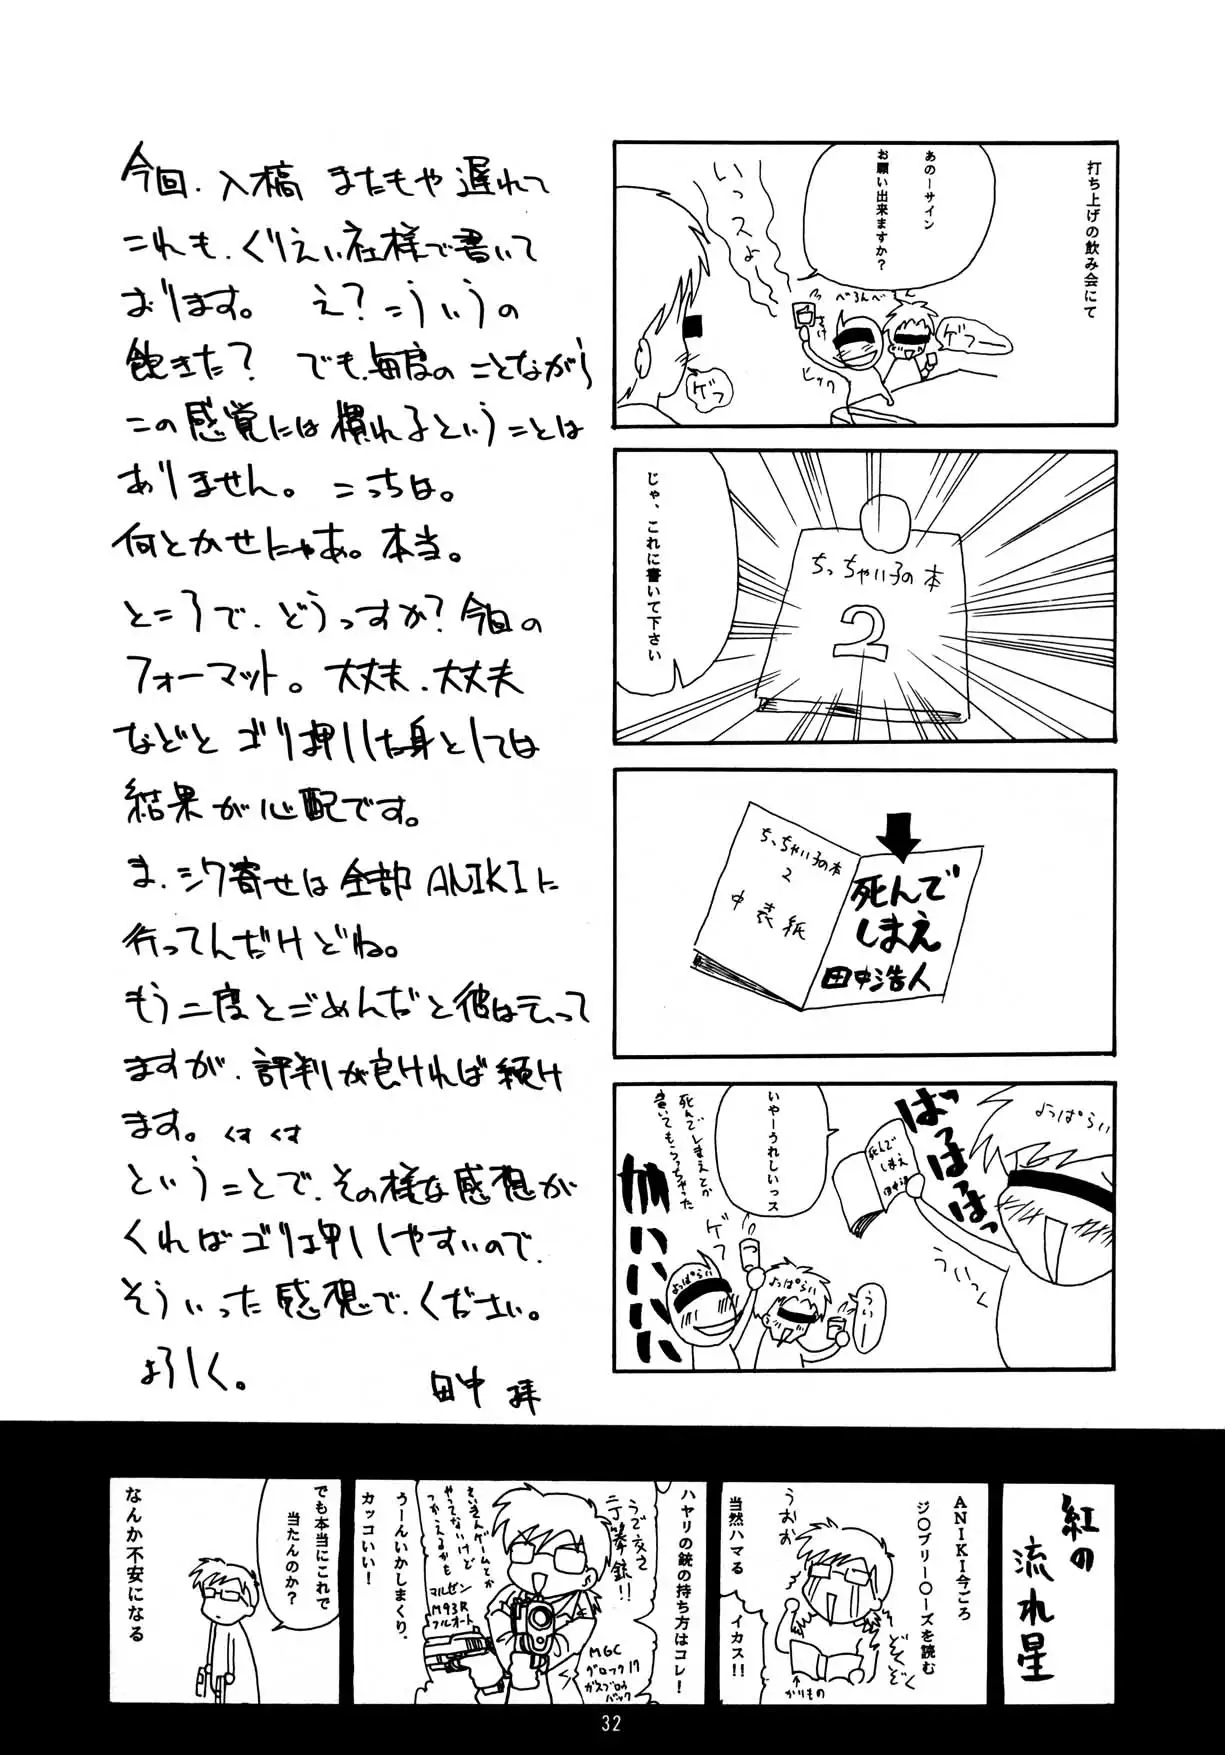 今回、入稿 またもや 遅れて
これも、くりえい社様で書いて
おります。 え?こういうの
飽きた? でも、毎度のことながら
この感覚には慣れるということは
ありません。こっちは。
何とかせにゃあ。本当。
ところで、どうっすか?今回の
フォーマット。大丈夫、大丈夫
などと ゴリ押しした身としては
結果が心配です。
ま、シワ寄せは全部ANIKIに
行ってんだけどね。
もう二度とごめんだと彼は云って
ますが、評判が良ければ続け
ます。くすくす
ということで、その様な感想が
くればゴリ押ししやすいので、
そういった感想で、ください。
よろしく。
田中 拝
打ち上げの飲み会にて
あのーサイン
お願い出来ますか?
いっスよ
べろんべろん
ゲフー
さけ
ビック
ゲフ
じゃ、これに書いて下さい
ちっちゃい子の本
2
ちっちゃい子の本
2
中表紙
死んで
しまえ
田中浩人
よっぱらい
ばっはっはっはっ
死んで
しまえ
ういっく
いやーうれしいっス
死んでしまえとか
書いてもらっちゃった
ゲフ
よっぱらい
よっぱらい
ういー
紅の
流れ星
ANIKI今ごろ
ジ○ブリー○ーズを読む
当然ハマる
うおお
ぞくぞくぞく
かりもの
イカス!!
ハヤリの銃の持ち方はコレ!
うで交さ
二丁拳銃!!
さいきんゲームとか
やってないけど
つかえるかも
マルゼン
M93R
フルオート
MGC
グロック17
ガスブロウ
バック
うーんいかしまくり、
カッコいい!
でも本当にこれで
当たんのか?
なんか不安になる
32